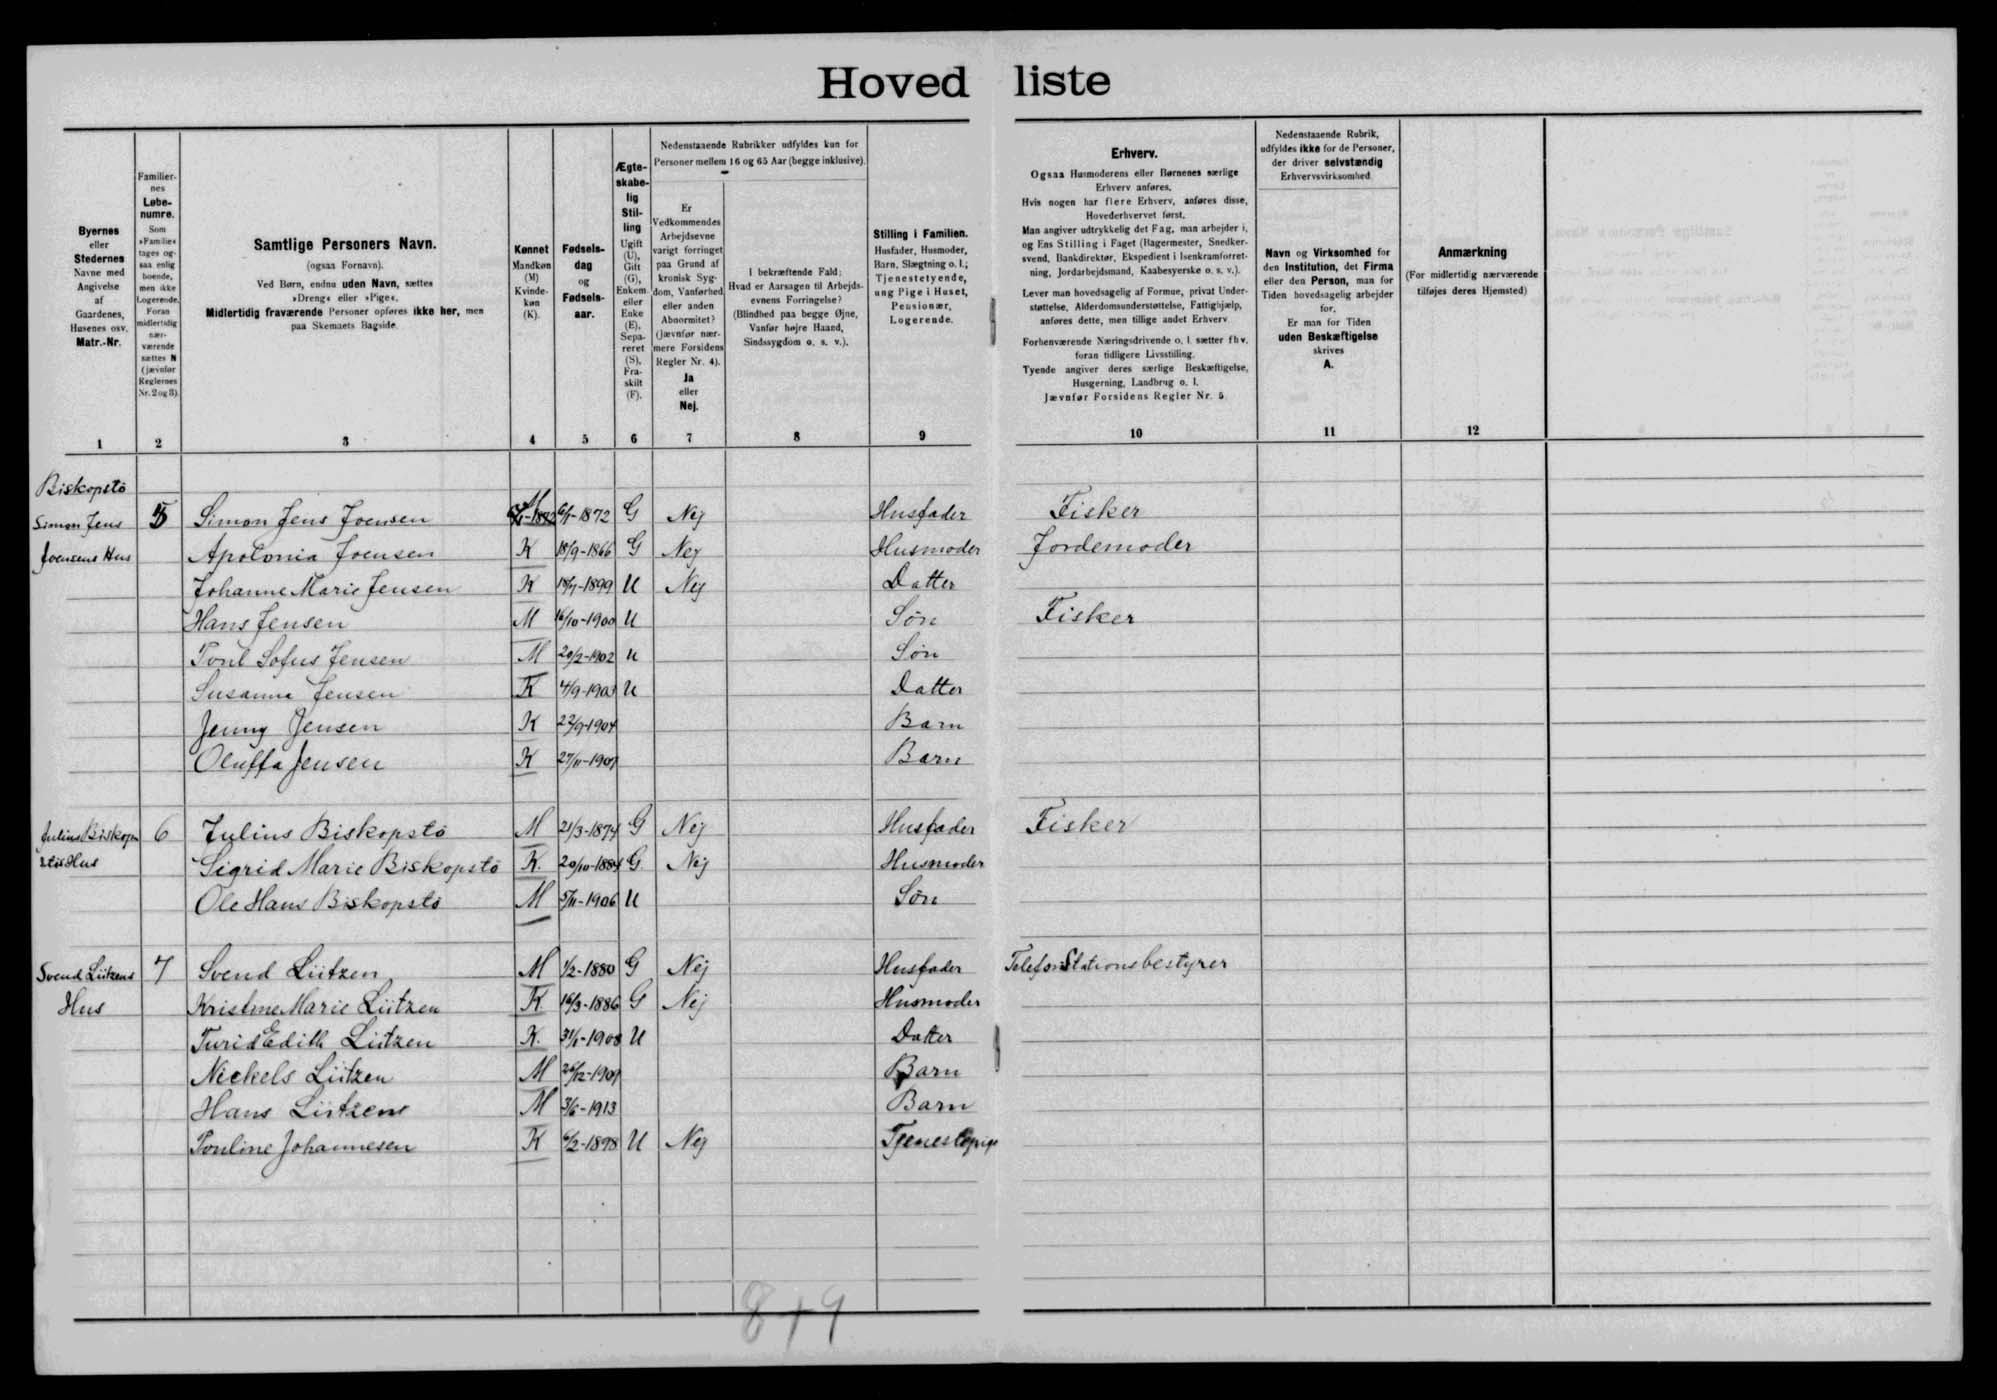 Hoved liste
Byernes
eller
Stedernes
Navne med
Angivelse
af
Gaardenes,
Husenes osv.
Matr.-Nr.
Familier-
nes
Løbe-
numre.
Som
»Familie«
tages og-
saa enlig
boende,
men ikke
Logerende.
Foran
midlertidig
nær-
værende
sættes N
(jævnfør
Reglernes
Nr. 2 og 3).
Samtlige Personers Navn.
(ogsaa Fornavn).
Ved Børn, endnu uden Navn, sættes
»Dreng« eller »Pige«.
Midlertidig fraværende Personer opføres ikke her, men
paa Skemaets Bagside.
Kønnet
Mandkøn
(M)
Kvinde-
køn
(K).
Fødsels-
dag
og
Fødsels-
aar.
Ægte-
skabe-
lig
Stil-
ling
Ugift
(U),
Gift
(G),
Enkem.
eller
Enke
(E),
Sepa-
reret
(S),
Fra-
skilt
(F).
Nedenstaaende Rubrikker udfyldes kun for
Personer mellem 16 og 65 Aar (begge inklusive).
Er
Vedkommendes
Arbejdsevne
varigt forringet
paa Grund af
kronisk Syg-
dom, Vanførhed
eller anden
Abnormitet?
(Jævnfør nær-
mere Forsidens
Regler Nr. 4).
Ja
eller
Nej.
I bekræftende Fald:
Hvad er Aarsagen til Arbejds-
evnens Forringelse?
(Blindhed paa begge Øjne,
Vanfør højre Haand,
Sindssygdom o. s. v.).
Stilling i Familien.
Husfader, Husmoder,
Barn, Slægtning o. l.;
Tjenestetyende,
ung Pige i Huset,
Pensionær,
Logerende.
Erhverv.
Ogsaa Husmoderens eller Børnenes særlige
Erhverv anføres.
Hvis nogen har flere Erhverv, anføres disse,
Hovederhvervet først.
Man angiver udtrykkelig det Fag, man arbejder i,
og Ens Stilling i Faget (Bagermester, Snedker-
svend, Bankdirektør, Ekspedient i Isenkramforret-
ning, Jordarbejdsmand, Kaabesyerske o. s. v.).
Lever man hovedsagelig af Formue, privat Under-
støttelse, Alderdomsunderstøttelse, Fattighjælp,
anføres dette, men tillige andet Erhverv.
Forhenværende Næringsdrivende o. l. sætter fhv.
foran tidligere Livsstilling.
Tyende angiver deres særlige Beskæftigelse,
Husgerning, Landbrug o. l.
Jævnfør Forsidens Regler Nr. 5.
Nedenstaaende Rubrik,
udfyldes ikke for de Personer,
der driver selvstændig
Erhvervsvirksomhed.
Navn og Virksomhed for
den Institution, det Firma
eller den Person, man for
Tiden hovedsagelig arbejder
for.
Er man for Tiden
uden Beskæftigelse
skrives
A.
Anmærkning
(For midlertidig nærværende
tilføjes deres Hjemsted)
1 2 3 4 5 6 7 8 9 10 11 12
Biskopstö
Simon Jens 5 Simon Jens Joensen M 6/1-1872 G Nej Husfader Fisker
Joensens Hus Apolonia Joensen K 18/9-1866 G Nej Husmoder Jordemoder
Johanne Marie Jensen K 18/7-1899 U Nej Datter
Hans Jensen M 16/10-1900 U Søn Fisker
Poul Sofus Jensen M 20/2-1902 U Søn
Susanna Jensen K 4/9-1903 U Datter
Jenny Jensen K 22/9-1904 Barn
Oluffa Jensen K 27/11-1907 Barn
Julius Biskop 6 Julius Biskopstö M 21/3-1874 G Nej Husfader Fisker
stös Hus Sigrid Marie Biskopstö K. 20/10-1884 G Nej Husmoder
Ole Hans Biskopstö M 5/11-1906 U Søn
Svend Lützens 7 Svend Lützen M 1/2-1880 G Nej Husfader Telefonstationsbestyrer
Hus Kristine Marie Lützen K 16/3-1886 G Nej Husmoder
Turid Edith Lützen K. 31/1-1908 U Datter
Nickels Lützen M 26/12-1909 Barn
Hans Lützen M 3/6-1913 Barn
Pouline Johannesen K 6/2-1898 U Nej Tjenestepige
8+9